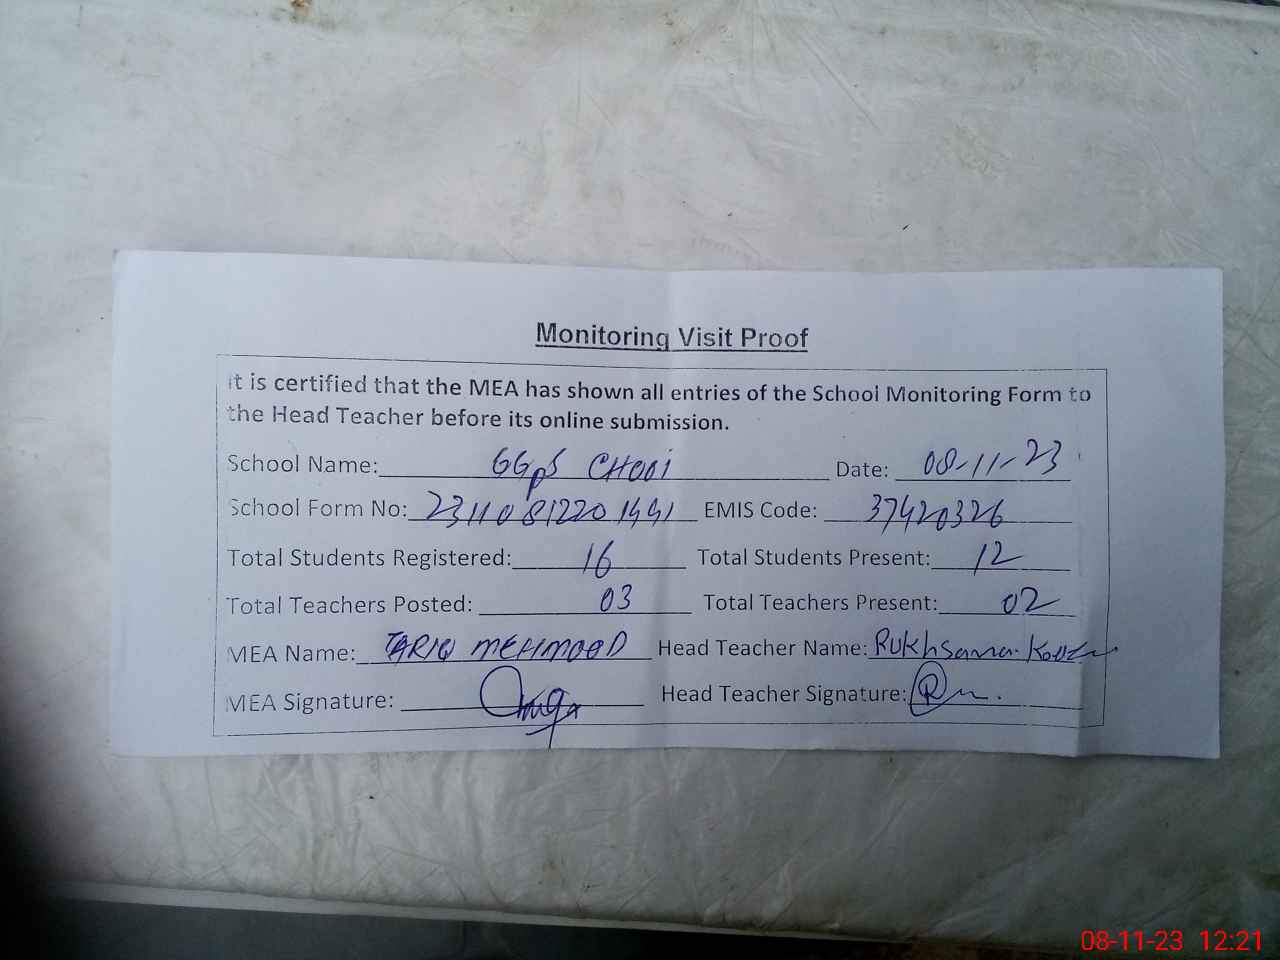 Monitoring Visit Proof
It is certified that the MEA has shown all entries of the School Monitoring Form to
the Head Teacher before its online submission.
School Name: GGPS CHOOI Date: 08-11-23
School Form No: 23110812201991 EMIS Code: 37420326
Total Students Registered: 16 Total Students Present: 12
Total Teachers Posted: 03 Total Teachers Present: 02
MEA Name: TARIQ MEHMOOD Head Teacher Name: Rukhsana Kousar
MEA Signature: Head Teacher Signature:
08-11-23 12:21